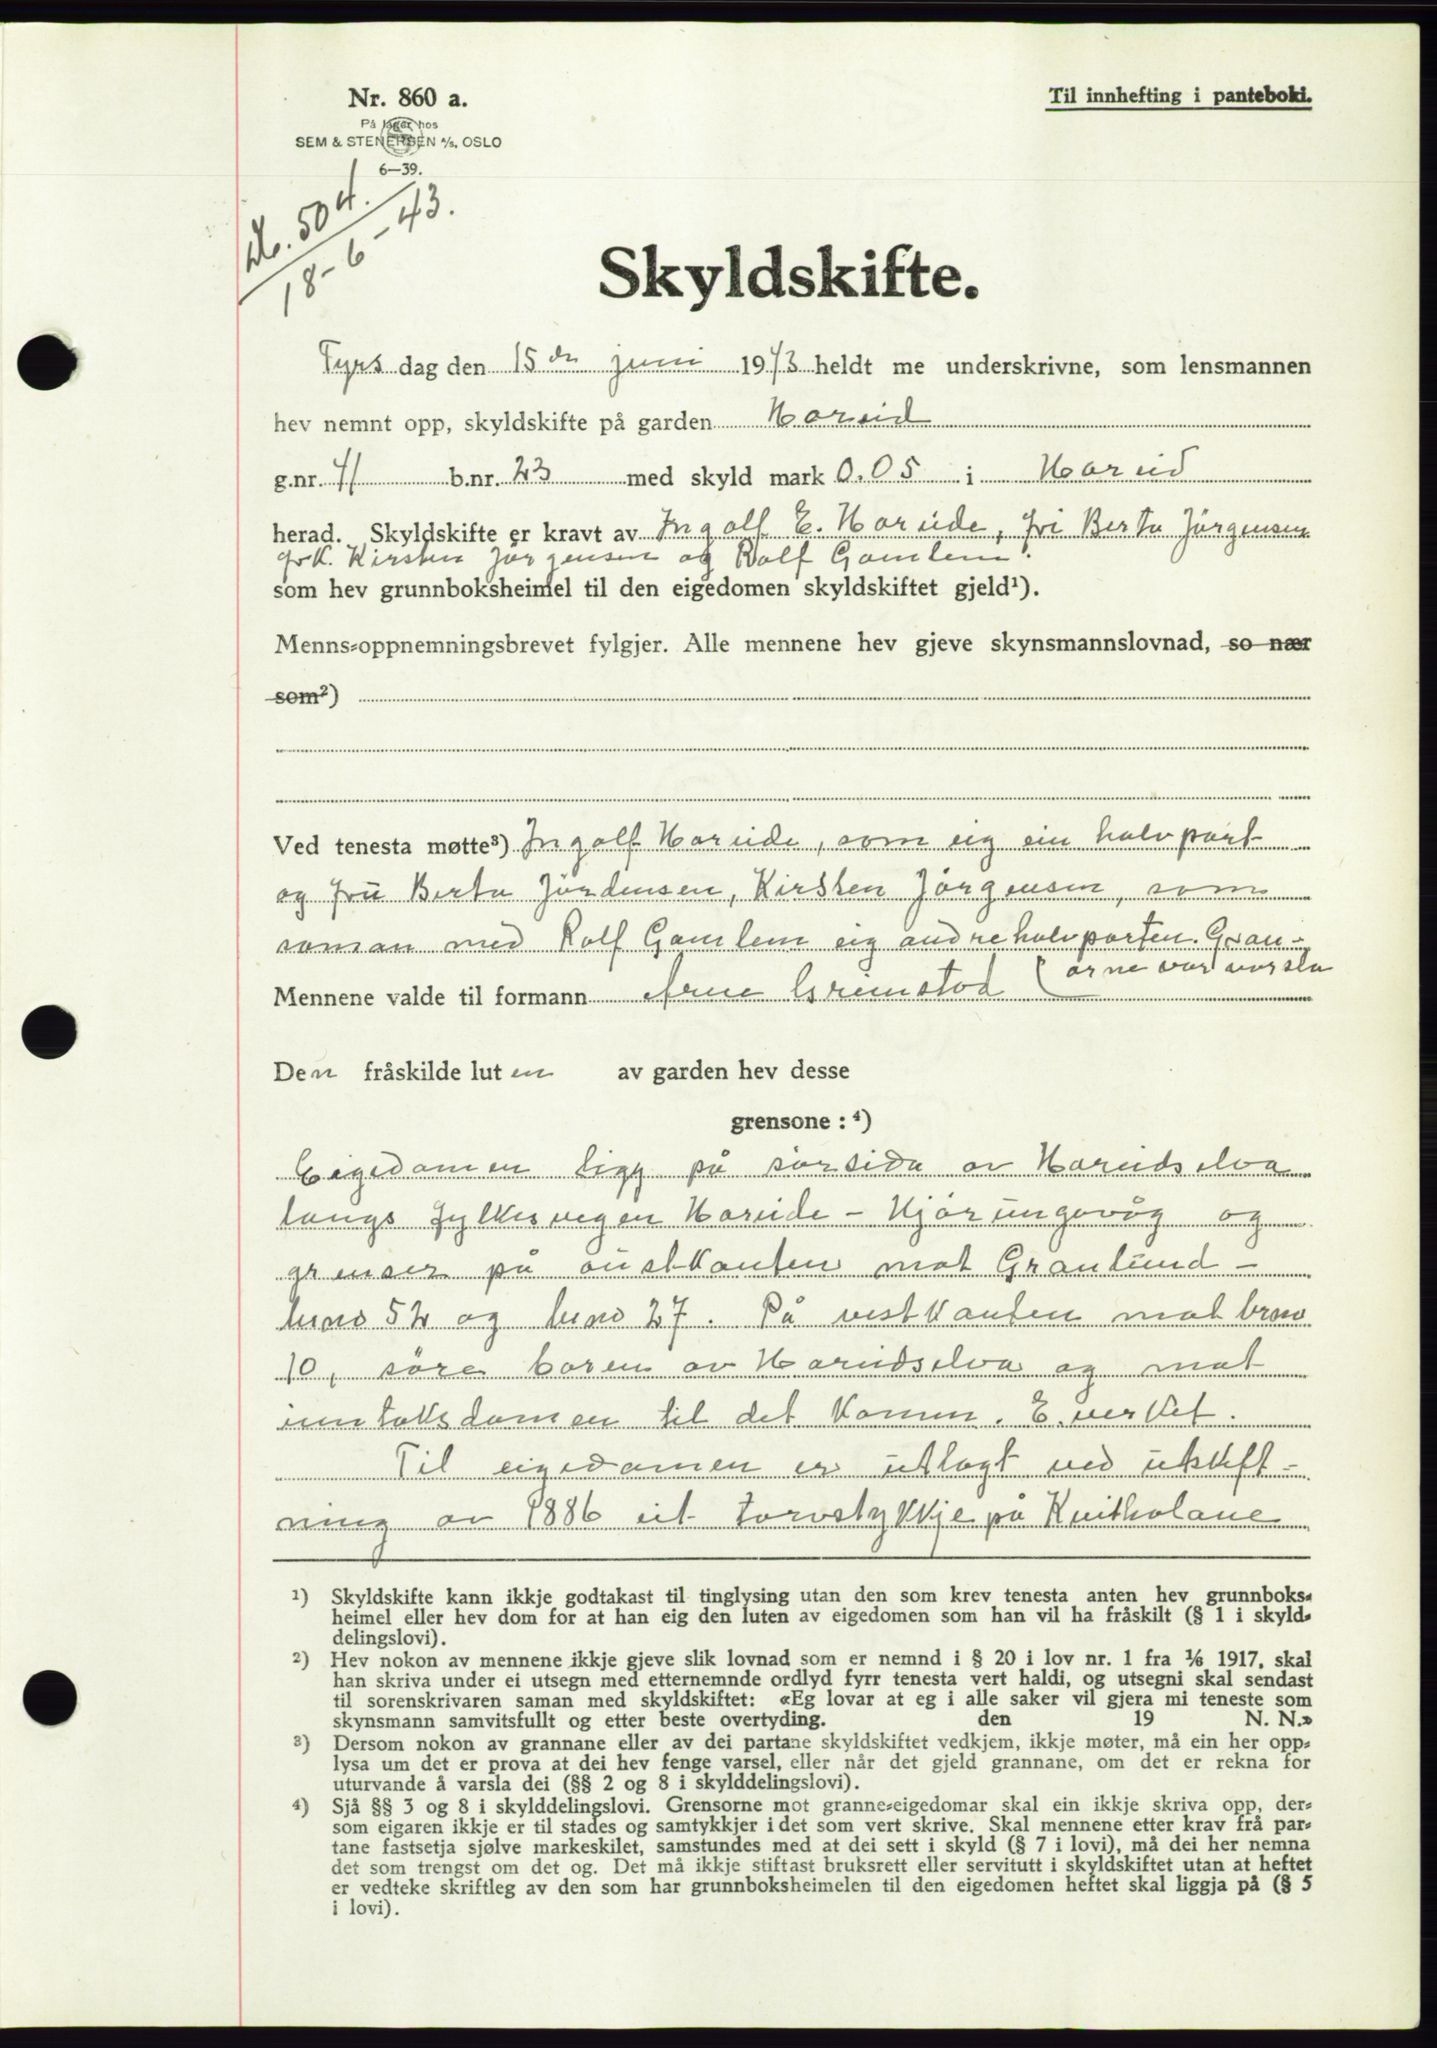 Nr. 860 a.
På lager hos
SEM & STENERSEN A/S, OSLO
6—39.
Til innhefting i panteboki.
504.
18-6-43.
Skyldskifte.
Tyrs dag den 15 dn juni 1943 heldt me underskrivne, som lensmannen
hev nemnt opp, skyldskifte på garden Hareid
g.nr. 41 b.nr. 23 med skyld mark 0.05 i Hareid
herad. Skyldskifte er kravt av Ingolf E. Hareide, fru Berta Jørgensen
frk. Kirsten Jørgensen og Rolf Gamlem.
som hev grunnboksheimel til den eigedomen skyldskiftet gjeld¹).
Menns-oppnemningsbrevet fylgjer. Alle mennene hev gjeve skynsmannslovnad, so nær
som²)
Ved tenesta møtte³) Ingolf Hareide, som eig ein halvpart
og frü Berta Jördensen, Kirsten Jørgensen, som
saman med Rolf Gamlem eig andre halvparten. Gran-
arne var varsla
Mennene valde til formann Arne Grimstad
Den fråskilde luten av garden hev desse
grensone : ⁴)
Eigedomen ligg på sørsida av Hareidselva
langs fylkesvegen Hareide - Hjørungavåg og
grenser på austkanten mot Granlund -
bruno 52 og bruno 27. På vestkanten mot bruno
10, søre baren av Hareidselva og mot
inntaksdamen til det Komm. E.verket.
Til eigedomen er utlagt ved utskift-
ning av 1886 eit torvstykkje på Kvitholane
¹) Skyldskifte kann ikkje godtakast til tinglysing utan den som krev tenesta anten hev grunnboks-
heimel eller hev dom for at han eig den luten av eigedomen som han vil ha fråskilt (§ 1 i skyld-
delingslovi).
²) Hev nokon av mennene ikkje gjeve slik lovnad som er nemnd i § 20 i lov nr. 1 fra 1/6 1917, skal
han skriva under ei utsegn med etternemnde ordlyd fyrr tenesta vert haldi, og utsegni skal sendast
til sorenskrivaren saman med skyldskiftet: «Eg lovar at eg i alle saker vil gjera mi teneste som
skynsmann samvitsfullt og etter beste overtyding. den 19 N. N.»
³) Dersom nokon av grannane eller av dei partane skyldskiftet vedkjem, ikkje møter, må ein her opp-
lysa um det er prova at dei hev fenge varsel, eller når det gjeld grannane, om det er rekna for
uturvande å varsla dei (§§ 2 og 8 i skylddelingslovi).
⁴) Sjå §§ 3 og 8 i skylddelingslovi. Grensorne mot granne-eigedomar skal ein ikkje skriva opp, der-
som eigaren ikkje er til stades og samtykkjer i det som vert skrive. Skal mennene etter krav frå par-
tane fastsetja sjølve markeskilet, samstundes med at dei sett i skyld (§ 7 i lovi), må dei her nemna
det som trengst om det og. Det må ikkje stiftast bruksrett eller servitutt i skyldskiftet utan at heftet
er vedteke skriftleg av den som har grunnboksheimelen til den eigedomen heftet skal liggja på (§ 5
i lovi).